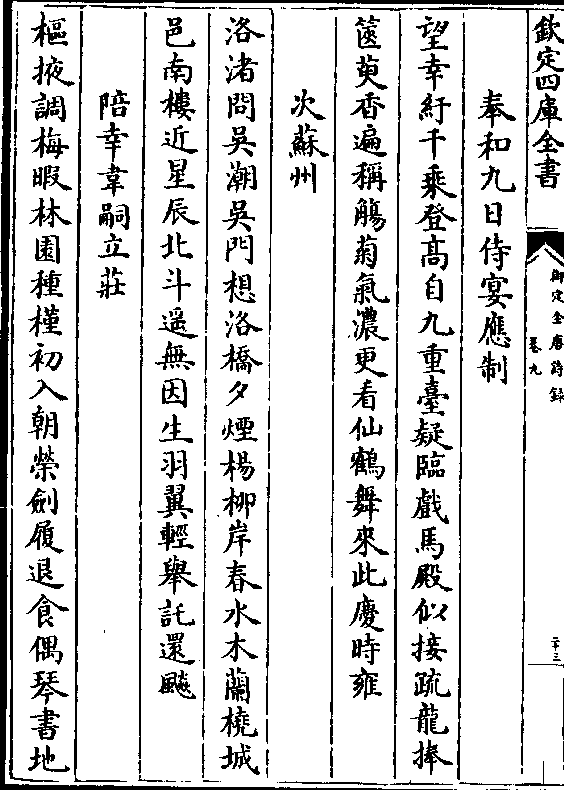 欽定四庫全書
御定全唐詩録
卷九
二十三
奉和九日侍宴應制
望幸紆千乘登髙自九重臺疑臨戲馬殿似接疏龍捧
篋萸香遍稱觴菊氣濃更看仙鶴舞來此慶時雍
次蘇州
洛渚問吳潮吳門想洛橋夕煙楊柳岸春水木蘭橈城
邑南樓近星辰北斗遥無因生羽翼輕舉託還飈
陪幸韋嗣立莊
樞掖調梅暇林園種槿初入朝榮劍履退食偶琴書地